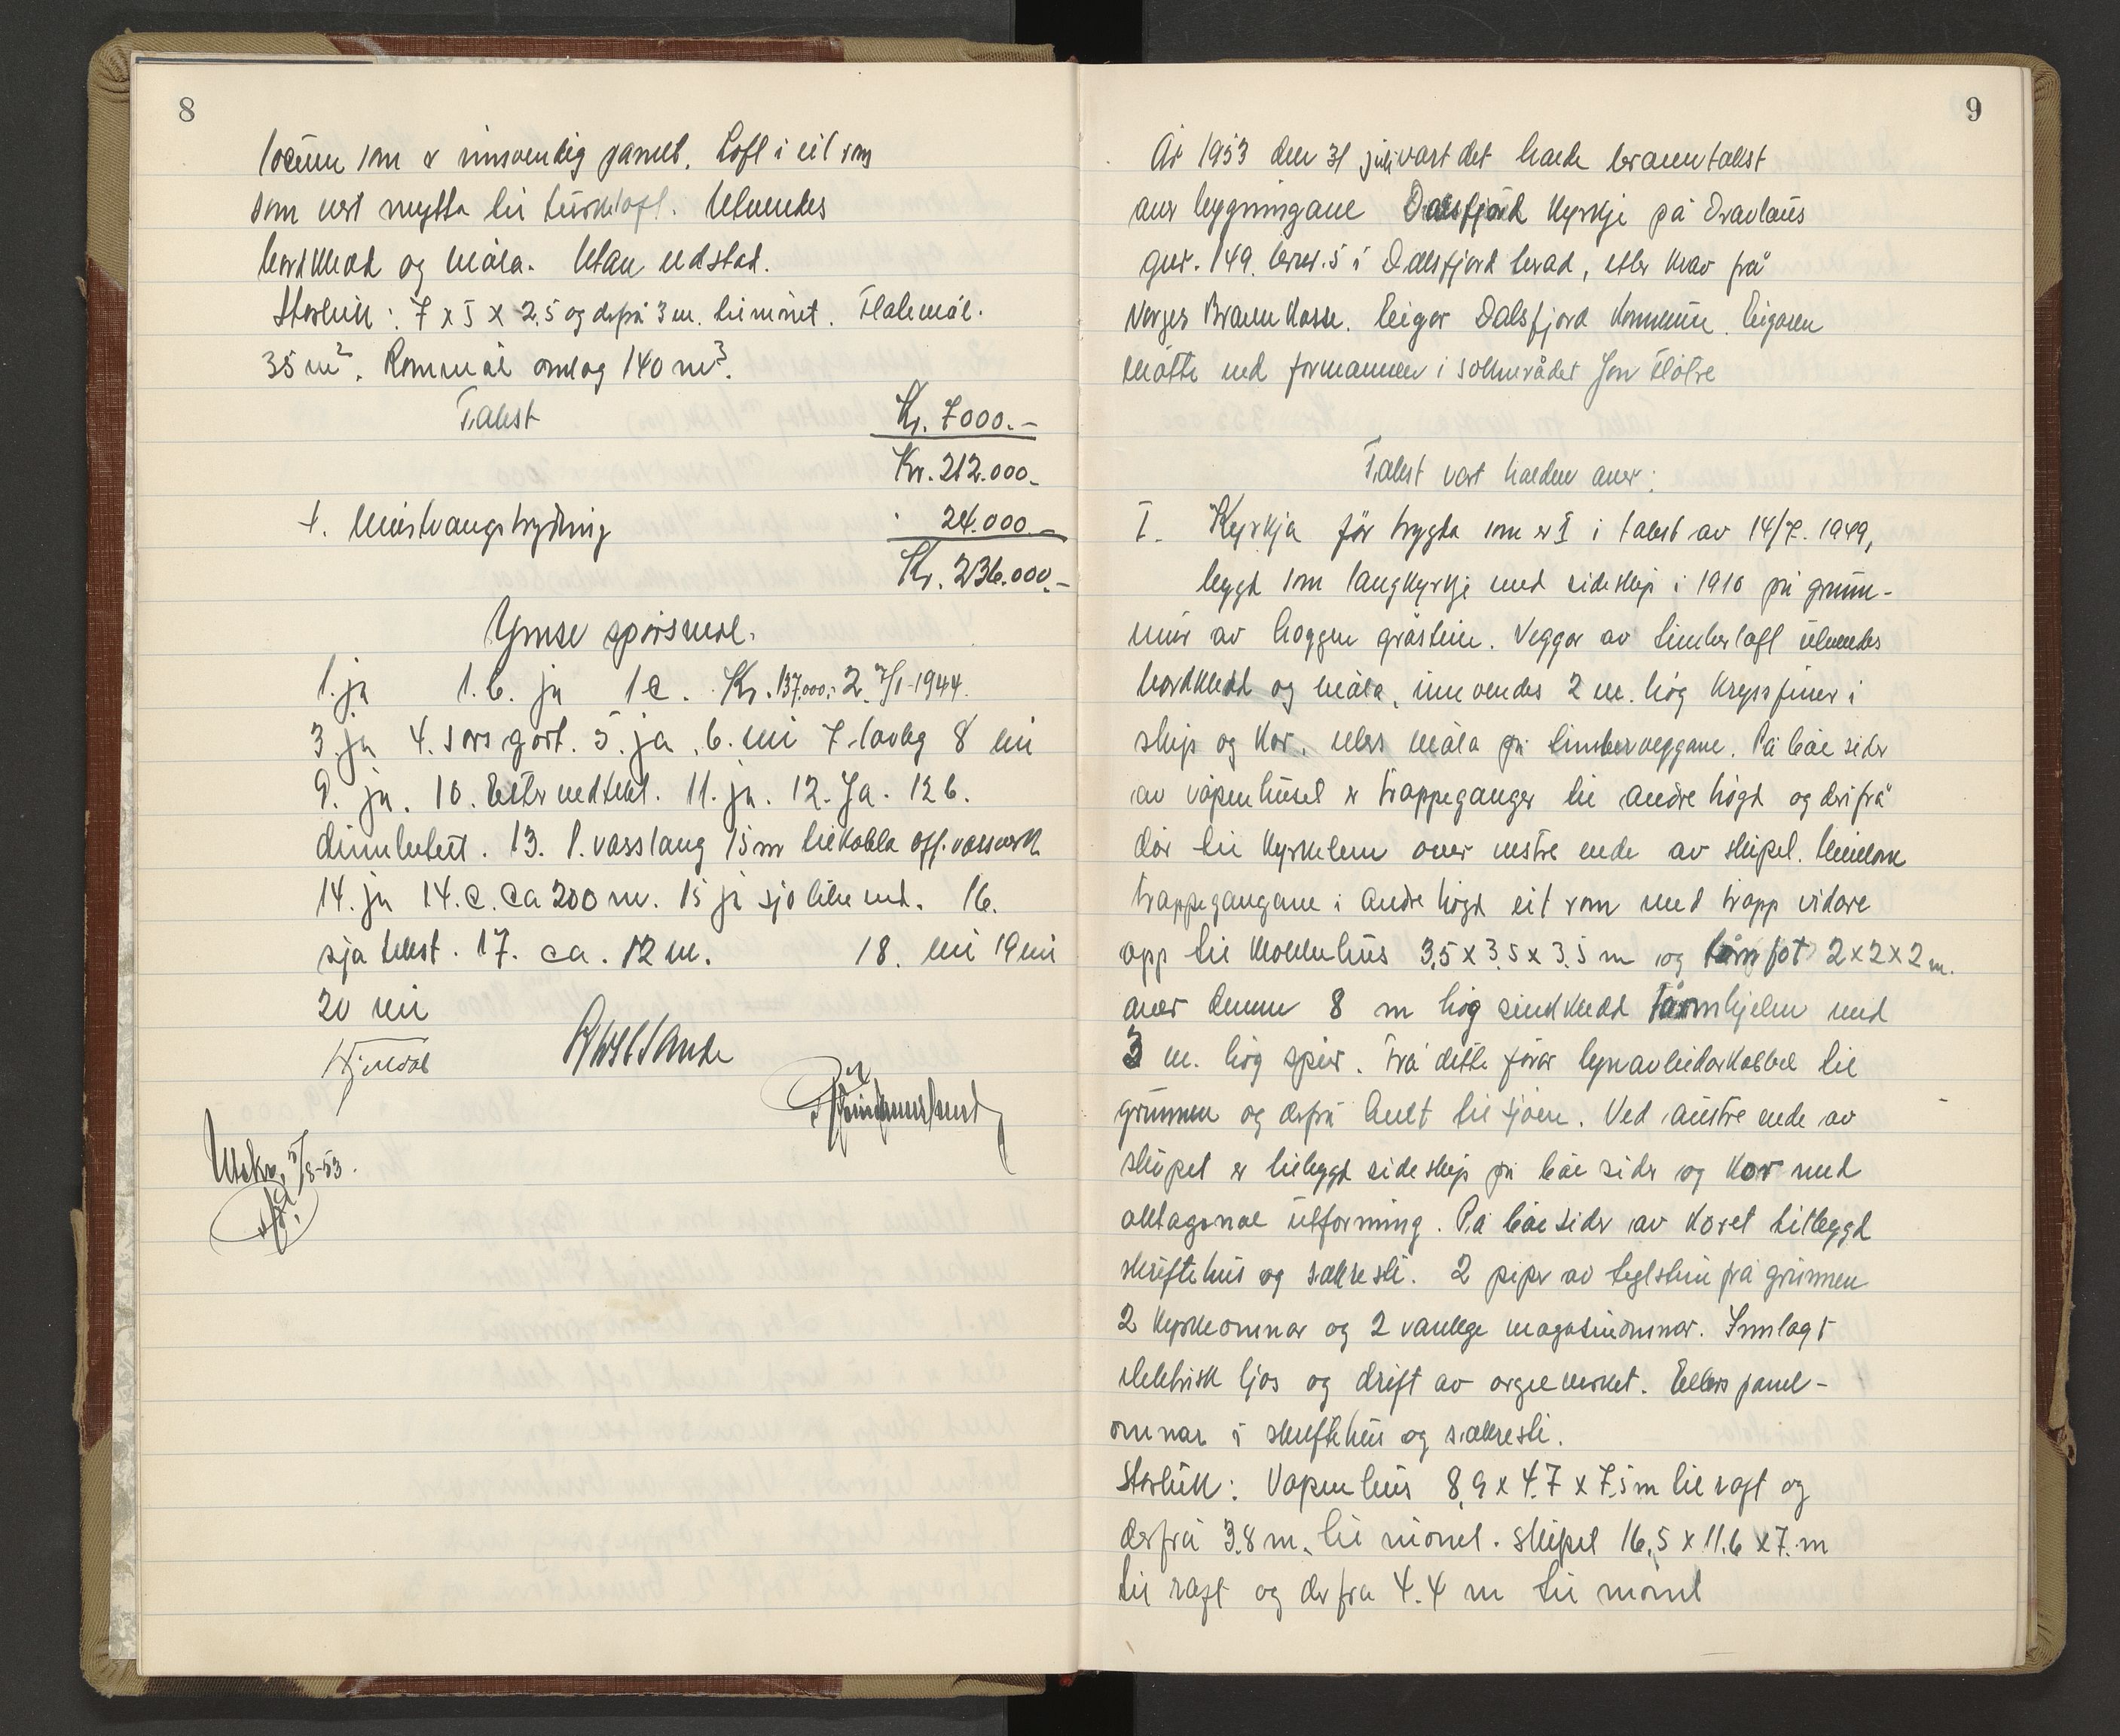 8
som er innvendig panelt. Loft i eit rom
som vert nytta til turkeloft. Utvendes
bordkledd og måla. Utan eldstad.
Storleik: 7 x 5 x 2,5 og derfrå 3 m. til mønet. Flatemål.
35 m². Rommål omlag 140 m³.
Takst Kr. 7000.-
Kr. 212.000.-
+. Meirtvangstrygding 24.000.-
Kr. 236.000.-
Ymse spørsmål.
1. ja 1.b. ja 1c. Kr. 137.000.- 2. 1/1-1944.
3. ja 4. gort. 5. ja. 6. nei 7. lovleg 8 nei
9. ja. 10. Etter vedtekt. 11. ja. 12. Ja. 12 b.
13. 1. vasslang 15 m tilkobla off. vassverk
14. ja 14. c. ca 200 m. 15 ja sjø like ved. 16.
sjå tekst. 17. ca. 12 m. 18. nei 19 nei
20 nei
Utskr. 5/8-53.
9
År 1953 den 31 juli vart det halde branntakst
over bygningane Dalsfjord kyrkje på Dravlaus
gnr. 149. brnr. 5 i Dalsfjord herad, etter krav frå
Norges Brannkasse. Eigar Dalsfjord kommune. Eigaren
møtte ved formannen i soknerådet Jon Fløtre
Takst vart halden over:
I. Kyrkja før trygda som nr I i takst av 14/7. 1949,
bygd som langkyrkje med sideskip i 1910 på grunn-
mur av hoggen gråstein. Veggar av timber loft utvendes
bordkledd og måla, innvendes 2 m. høg kryssfiner i
skip og kor, elles måla på timberveggane. På båe sider
av våpenhuset er trappeganger til andre høgd og derifrå
dør til kyrkelem over vestre ende av skipet. Mellom
trappegangane i andre høgd eit rom med trapp vidare
opp til klokkehus 3,5 x 3,5 x 3,5 m og tårnfot 2 x 2 x 2 m.
over denne 8 m høg sinkkledd tårnhjelm med
3 m. høg spir. Frå dette fører lynavleidarkabbel til
grunnen og derfrå heilt til sjøen. Ved austre ende av
skipet er tilbygd sideskip på båe sider og kor med
oktagonal utforming. På båe sider av koret tilbygd
skriftehus og sakresti. 2 piper av teglstein frå grunnen
2 kyrkeomnar og 2 vanlege magasinomnar. Innlagt
elektrisk ljos og drift av orgelverket. Ellers panel-
omnar i skriftehus og sakresti.
Storleik: Våpenhus 8,9 x 4,7 x 7,5 m til raft og
derfrå 3.8 m. til mønet. Skipet 16,5 x 11,6 x 7. m
til raft og derfra 4.4 m til mønet